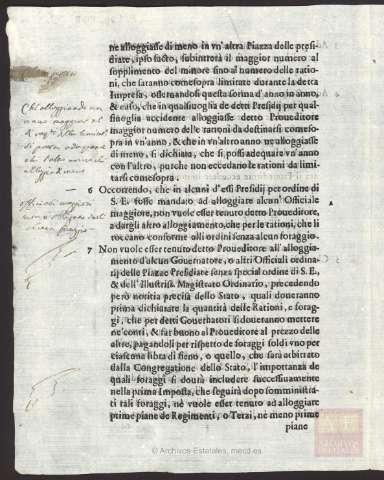 ne alloggiasse di meno in vn'altra Piazza delle presi-
diate, ipso facto, subintrerà il maggior numero al
supplimento del minore sino al numero delle ratio-
ni, che saranno comesopra limitate durante la detta
Impresa, osseruandosi questa forma d'anno in anno,
& caso, che in qualsiuoglia de detti Presidij per qual-
siuoglia accidente alloggiasse detto Proueditore
maggior numero delle rationi da destinarsi comeso-
pra in vn'anno, & che in vn'altro anno ne alloggiasse
di meno, si dichiara, che si possa adequare vn'anno
con l'altro, purche non eccedano le rationi da limi-
tarsi comesopra.
6 Occorrendo, che in alcuni d'essi Presidij per ordine di
S. E. fosse mandato ad alloggiare alcun' Officiale
maggiore, non vuole esser tenuto detto Proueditore,
a dargli altro alloggiamento, che per le rationi, che li
toccano conforme alli ordini senza alcun foraggio.
7 Non vuole esser tenuto detto Proueditore all' alloggia-
mento d'alcun Gouernatore, o altri Officiali ordina-
rij delle Piazze Presidiate senza special ordine di S. E,
& dell'Illustriss. Magistrato Ordinario, precedendo
però notitia precisa dello Stato, quali doueranno
prima dichiarare la quantità delle Rationi, e forag-
gi, che per detti Gouernatori si doueranno mettere
ne' conti, & far buono al Proueditore al prezzo delle
altre, pagandoli per rispetto de foraggi soldi vno per
ciascuna libra di fieno, o quello, che sarà arbitrato
dalla Congregatione dello Stato, l'importanza de
quali foraggi si dourà includere successiuamente
nella prima Imposta, che seguirà dopo somministra-
ti tali foraggi, nè vuole esser tenuto ad alloggiare
prime piane de Regimenti, o Terzi, nè meno prime
piane
Che alloggiando un
anno maggior
officiali maggiori
ARCHIVOS
ESTATALES
© Archivos Estatales, mecd.es